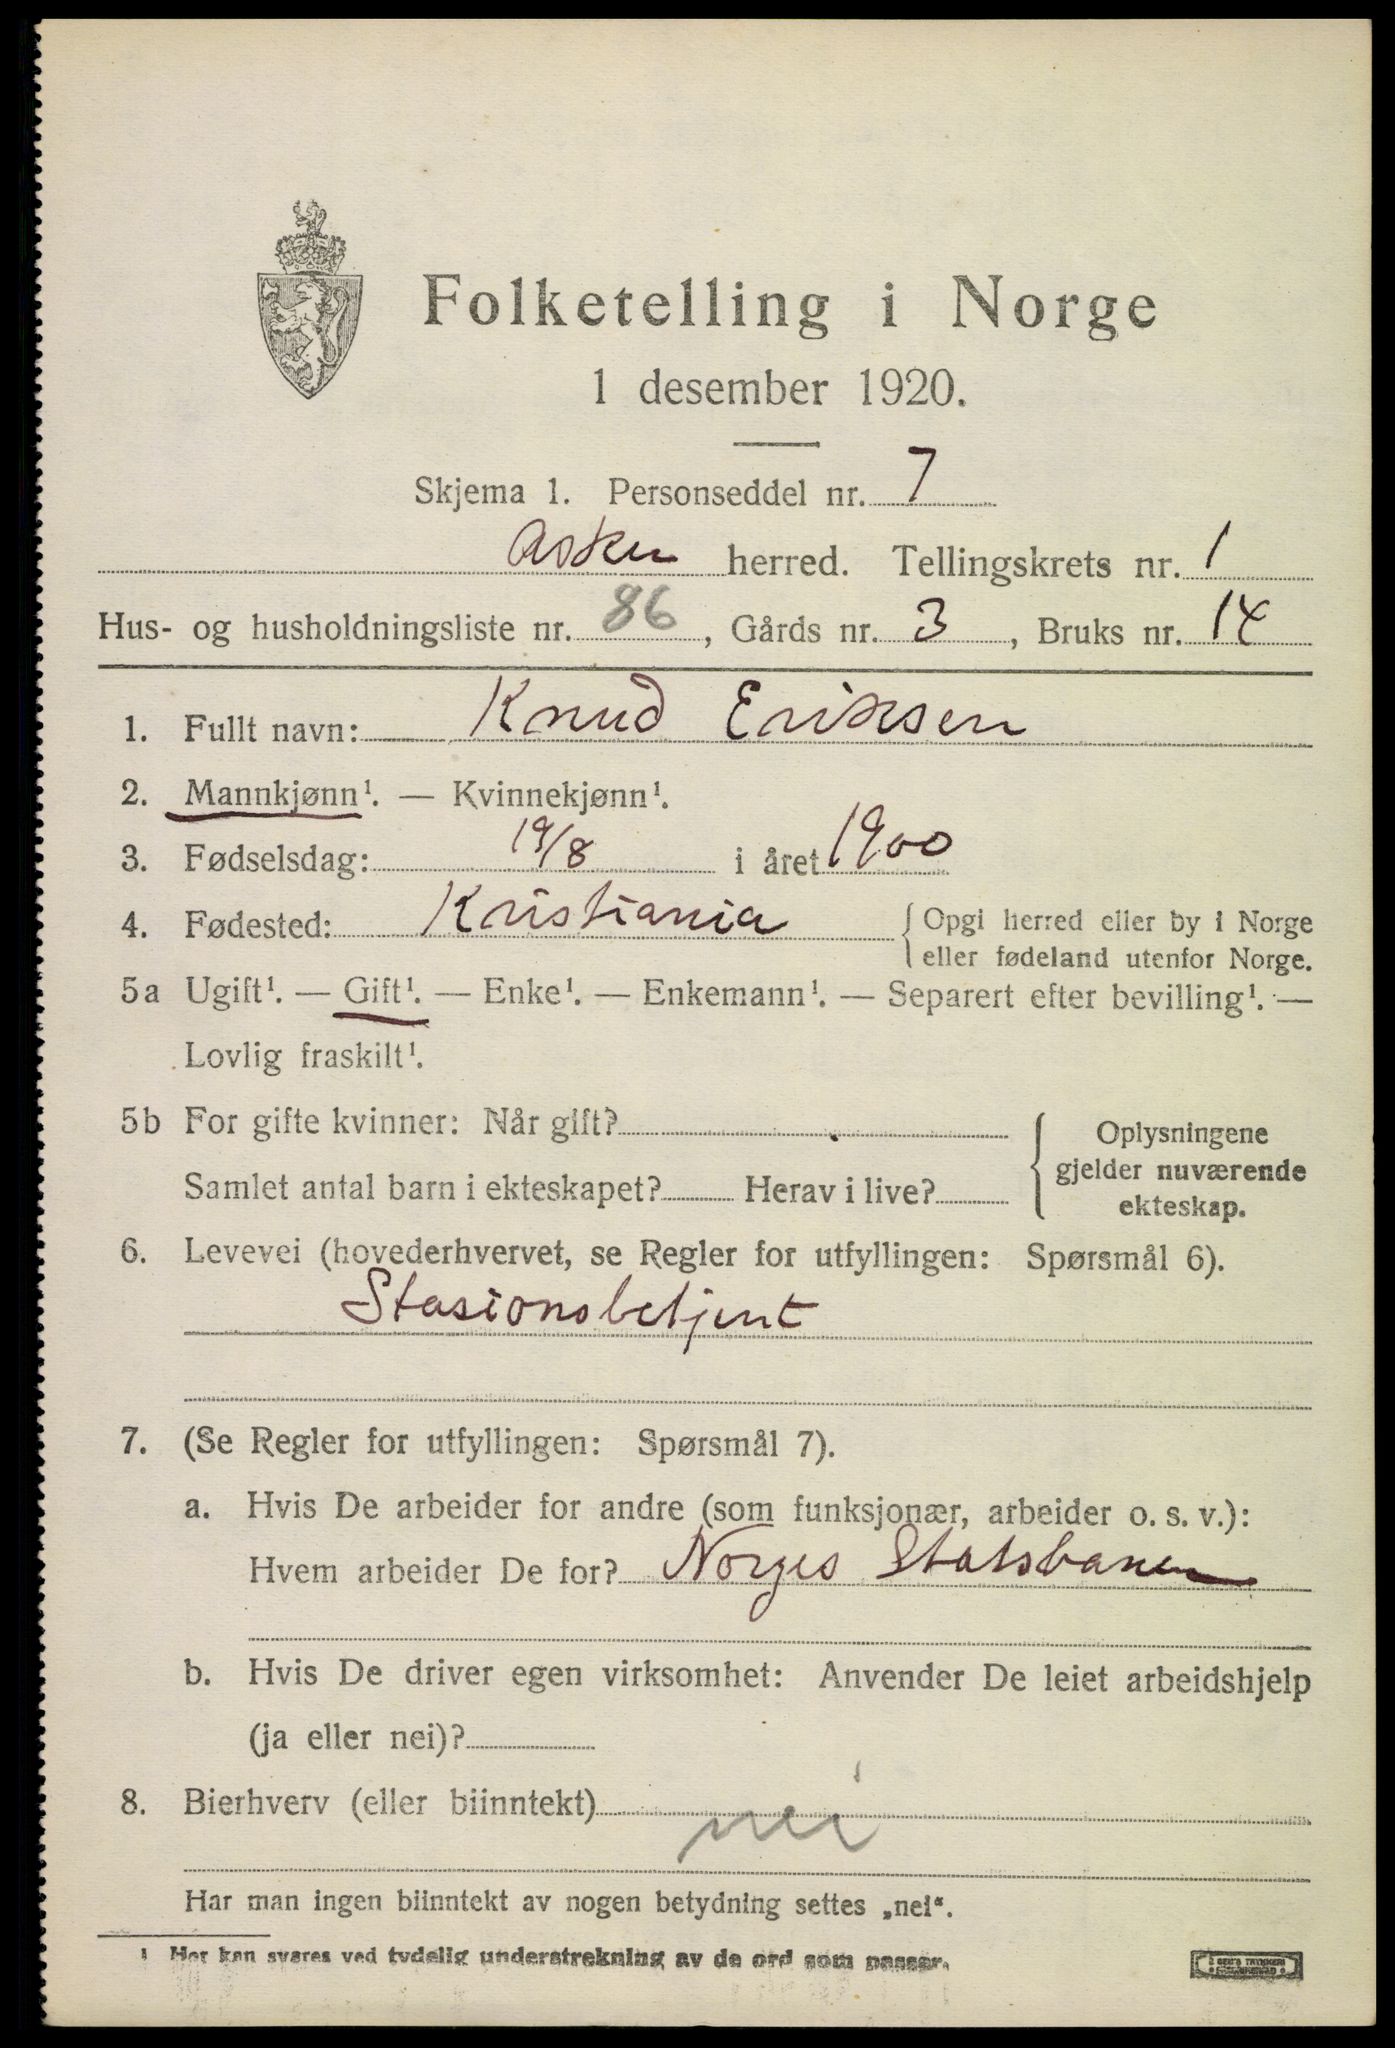 Folketelling i Norge
1 desember 1920.
Skjema 1. Personseddel nr. 7
Asker herred. Tellingskrets nr. 1
Hus- og husholdningsliste nr. 86, Gårds nr. 3, Bruks nr. 14
1. Fullt navn: Knud Eriksen
2. Mannkjønn¹. — Kvinnekjønn¹.
3. Fødselsdag: 19/8 i året 1900
4. Fødested: Kristiania { Opgi herred eller by i Norge
eller fødeland utenfor Norge.
5a Ugift¹. — Gift¹. — Enke¹. — Enkemann¹. — Separert efter bevilling¹. —
Lovlig fraskilt¹.
5b For gifte kvinner: Når gift?
Samlet antal barn i ekteskapet? Herav i live?
{ Oplysningene
gjelder nuværende
ekteskap.
6. Levevei (hovederhvervet, se Regler for utfyllingen: Spørsmål 6).
Stasionsbetjent
7. (Se Regler for utfyllingen: Spørsmål 7).
a. Hvis De arbeider for andre (som funksjonær, arbeider o. s. v.):
Hvem arbeider De for? Norges Statsbaner
b. Hvis De driver egen virksomhet: Anvender De leiet arbeidshjelp
(ja eller nei)?
8. Bierhverv (eller biinntekt) nei
Har man ingen biinntekt av nogen betydning settes „nei“.
1 Her kan svares ved tydelig understrekning av de ord som passer.